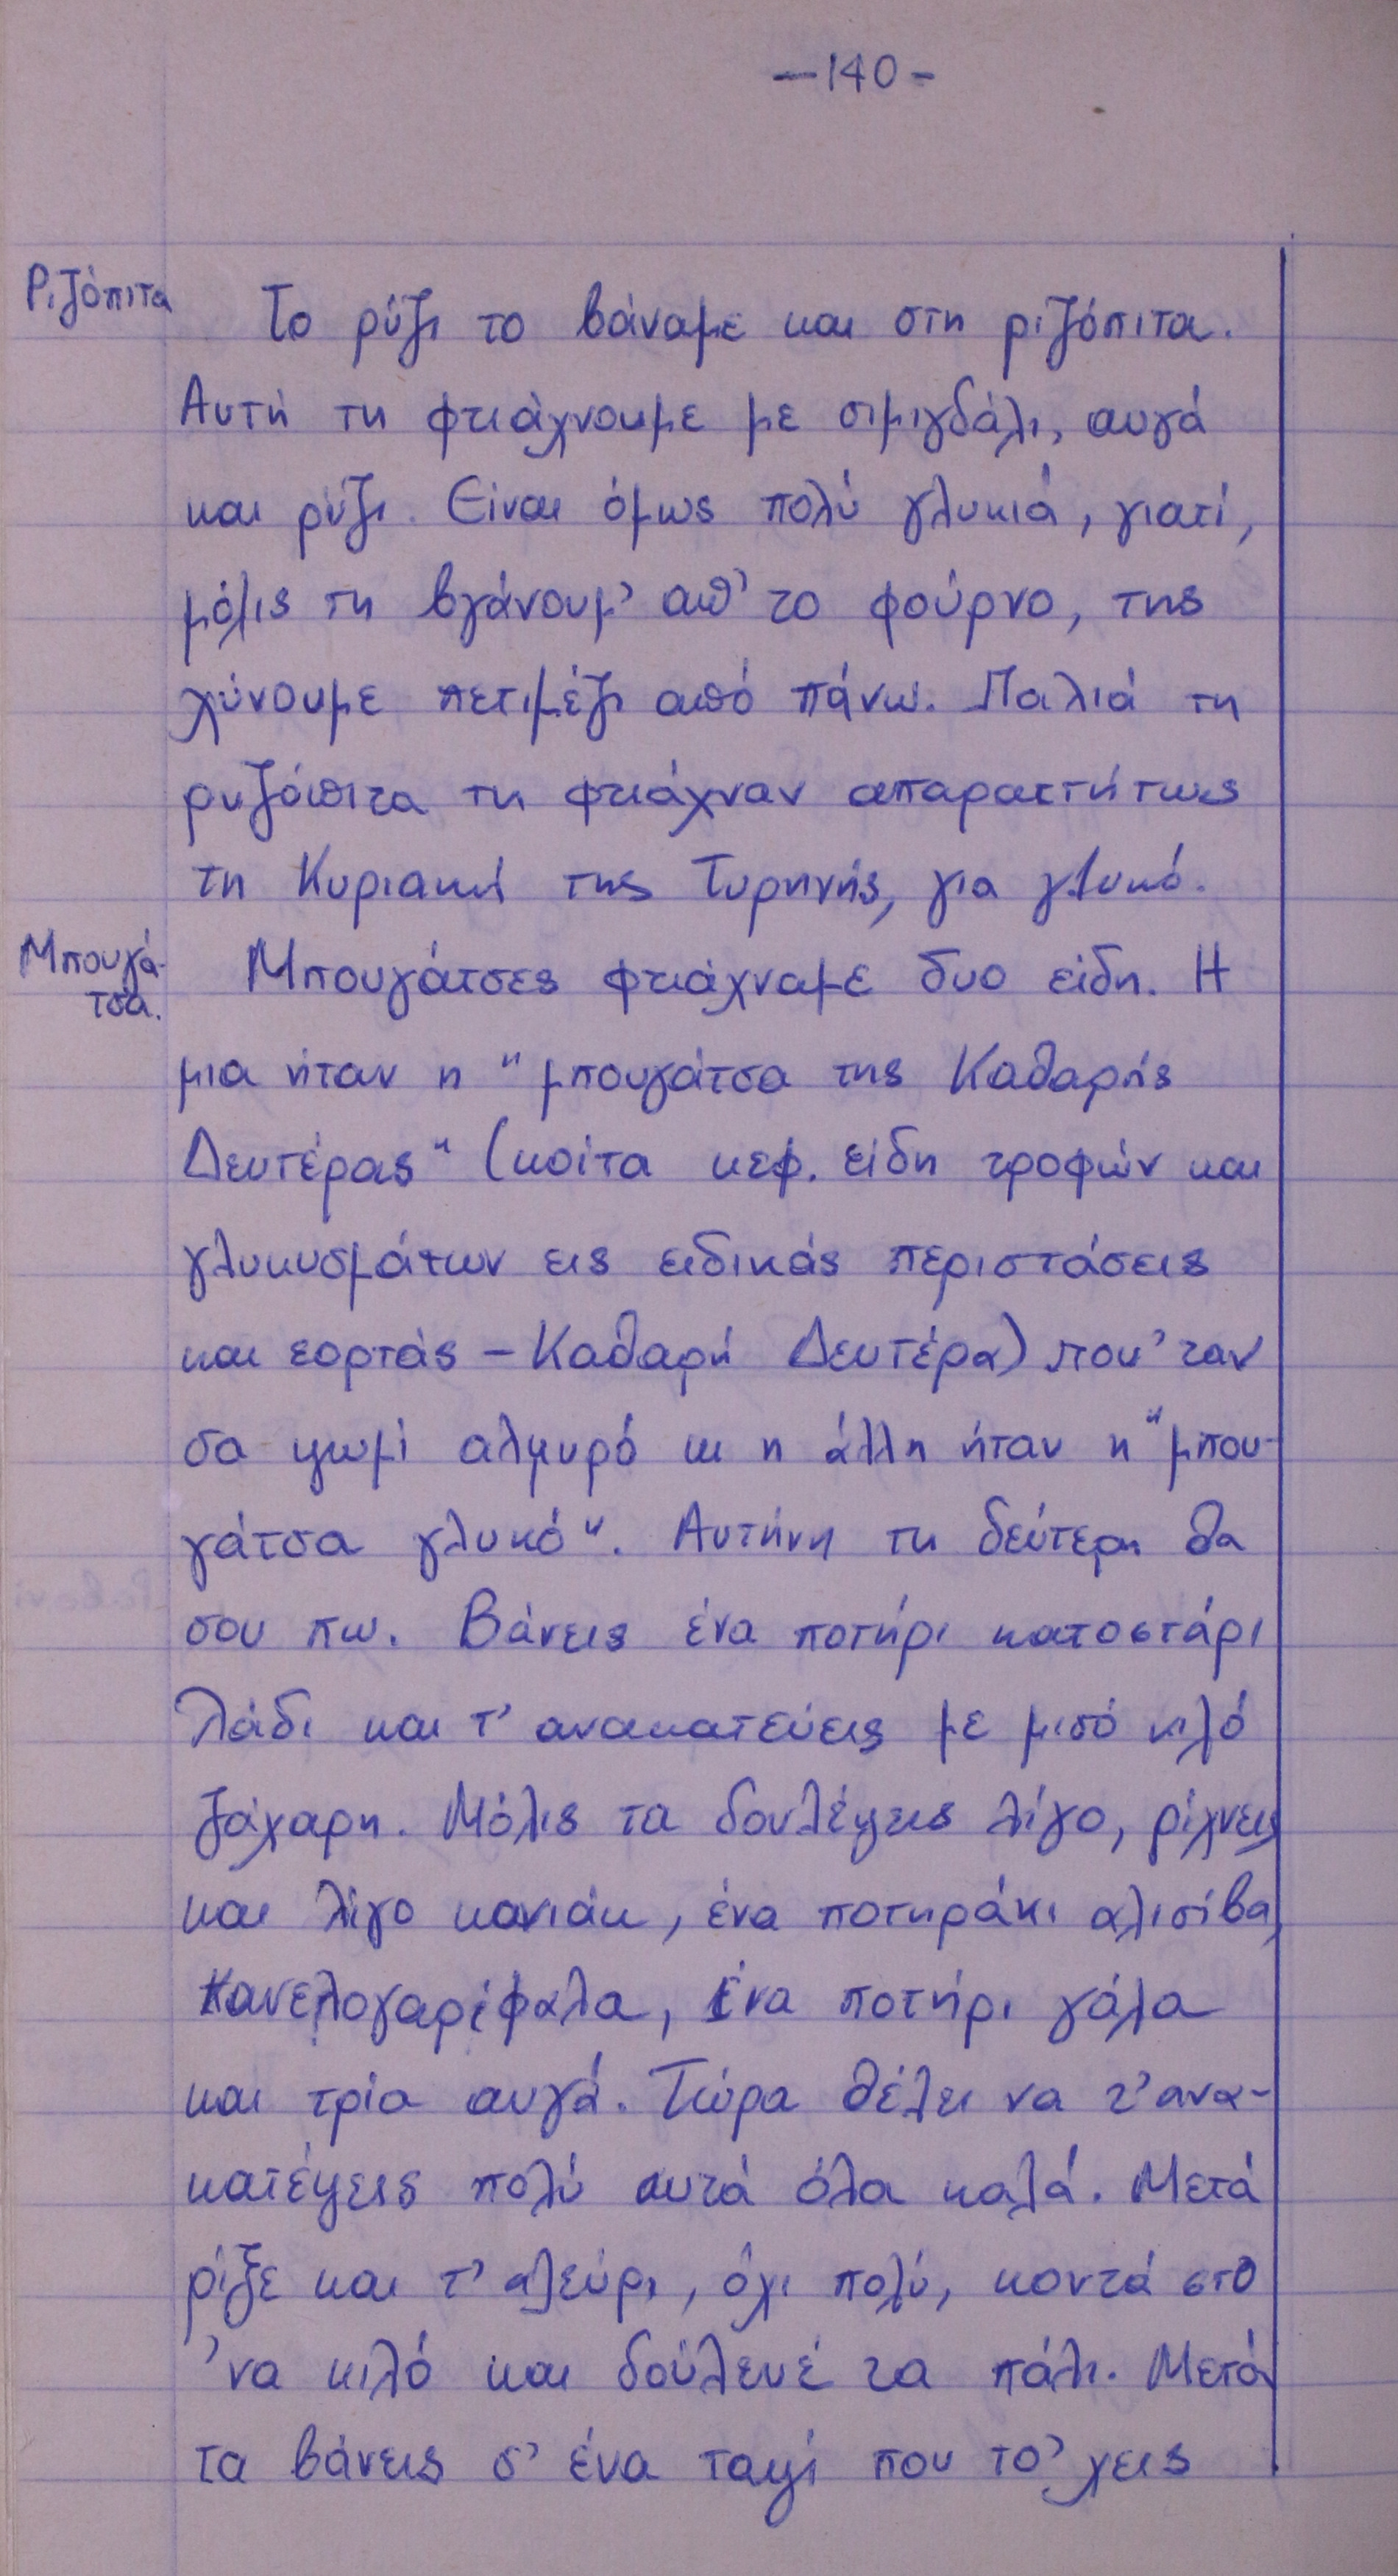 —140-
Ριζόπιτα
Το ρύζι το βάναμε και στη ριζόπιτα.
Αυτή τη φτιάχνουμε με σιμιγδάλι, αυγά
και ρύζι. Είναι όμως πολύ γλυκιά, γιατί,
μόλις τη βγάνουμ' απ' το φούρνο, της
χύνουμε πετιμέζι από πάνω. Παλιά τη
ρυζόπιτα τη φτιάχναν απαραιτήτως
τη Κυριακή της Τυρηνής, για γλυκό.
Μπουγά-
τσα.
Μπουγάτσες φτιάχναμε δυο είδη. Η
μια ήταν η "μπουγάτσα της Καθαρής
Δευτέρας" (κοίτα κεφ. είδη τροφών και
γλυκυσμάτων εις ειδικάς περιστάσεις
και εορτάς - Καθαρή Δευτέρα) που 'ταν
σα ψωμί αλμυρό κι η άλλη ήταν η "μπου-
γάτσα γλυκό". Αυτήνη τη δεύτερη θα
σου πω. Βάνεις ένα ποτήρι κατοστάρι
λάδι και τ' ανακατεύεις με μισό κιλό
ζάχαρη. Μόλις τα δουλέψεις λίγο, ρίχνεις
και λίγο κονιάκ, ένα ποτηράκι αλισίβα,
κανελογαρίφαλα, ένα ποτήρι γάλα
και τρία αυγά. Τώρα θέλει να τ' ανα-
κατέψεις πολύ αυτά όλα καλά. Μετά
ρίξε και τ' αλεύρι, όχι πολύ, κοντά στο
'να κιλό και δούλευέ τα πάλι. Μετά
τα βάνεις σ' ένα ταψί που το 'χεις